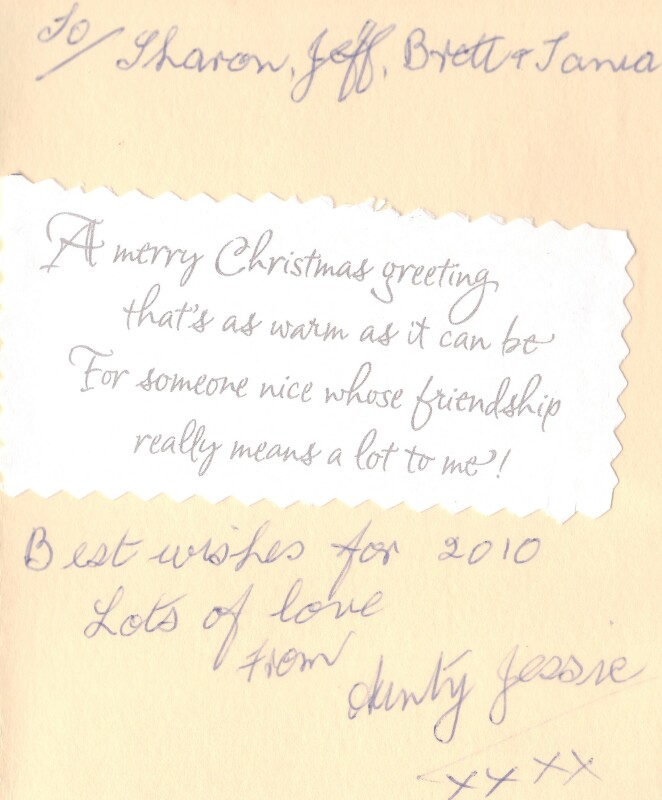 To/ Sharon, Jeff, Brett & Tania
A merry Christmas greeting
that's as warm as it can be
For someone nice whose friendship
really means a lot to me!
Best wishes for 2010
Lots of love
From
Aunty Jessie
xxxx